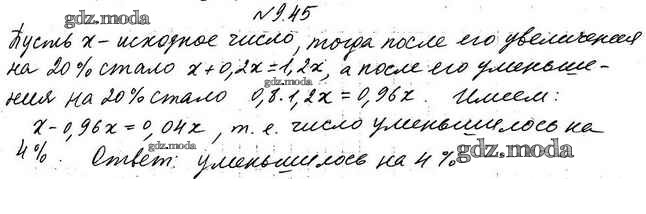 №9.45
gdz.moda
Пусть x – исходное число, тогда после его увеличения
на 20% стало x+0,2x=1,2x, а после его уменьше-
gdz.moda
ния на 20% стало 0,8·1,2x=0,96x. Имеем:
x-0,96x=0,04x, т.е. число уменьшилось на
4%. Ответ: уменьшилось на 4%
gdz.moda
gdz.moda